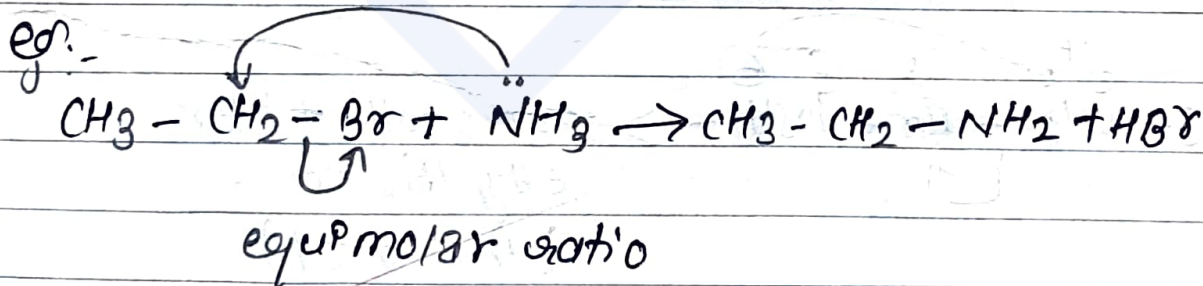 eg:-
CH3 - CH2 - Br + NH3 → CH3 - CH2 - NH2 + HBr
equimolar ratio